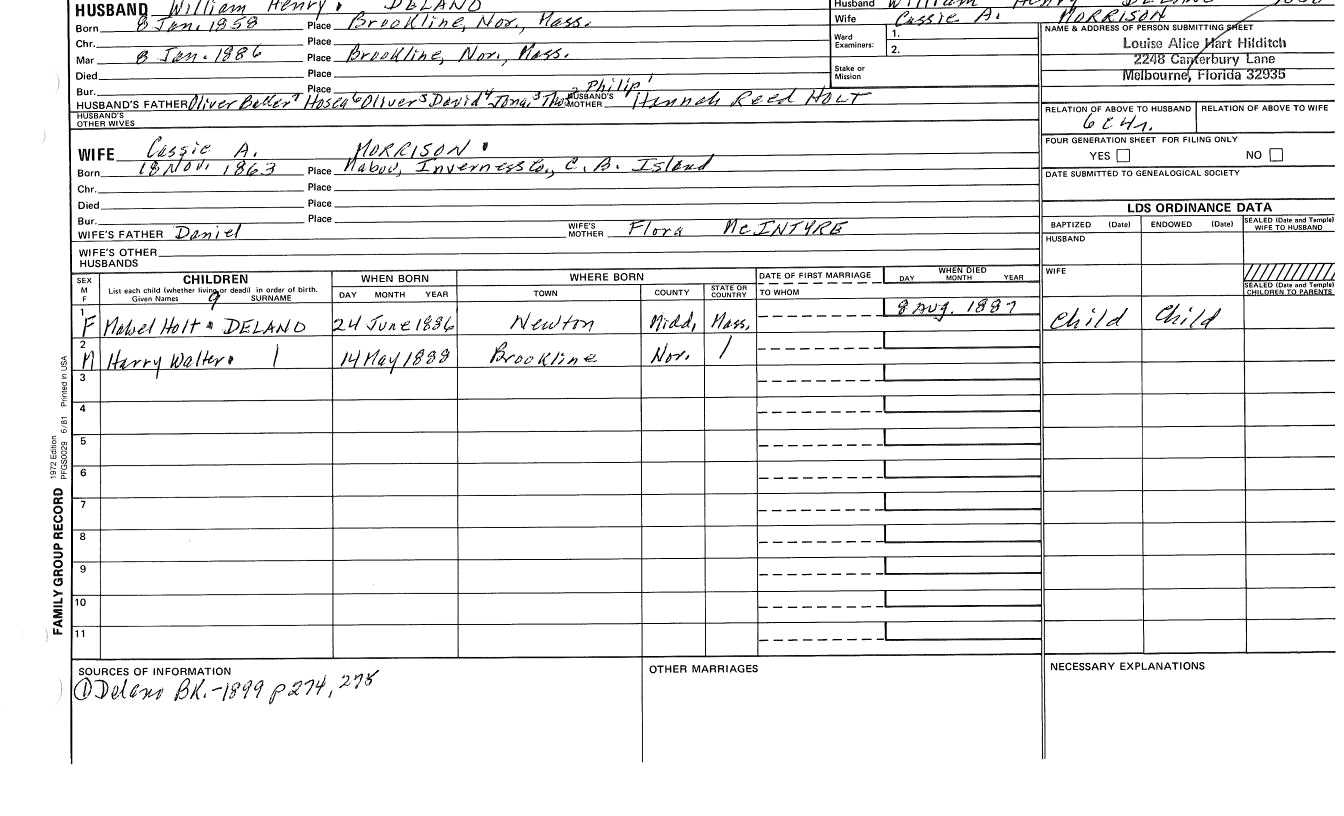 HUSBAND William Henry DELANO
Born 8 Jan. 1858 Place Brookline, Nor., Mass.
Chr. Place
Mar 8 Jan. 1886 Place Brookline, Nor, Mass.
Died Place
Bur. Place
HUSBAND'S FATHER Oliver Beller 7 Hosea 6 Oliver 5 David 4 Jona. 3 Tho 2 Philip 1 HUSBAND'S MOTHER Hannah Reed HOLT
HUSBAND'S OTHER WIVES
WIFE Cassie A. MORRISON
Born 18 Nov. 1863 Place Mabou, Inverness Co., C. B. Island
Chr. Place
Died Place
Bur. Place
WIFE'S FATHER Daniel WIFE'S MOTHER Flora McINTYRE
WIFE'S OTHER HUSBANDS
Husband William Henry DELANO
Wife Cassie A. MORRISON
Ward Examiners: 1.
2.
Stake or Mission
NAME & ADDRESS OF PERSON SUBMITTING SHEET
Louise Alice Hart Hilditch
2248 Canterbury Lane
Melbourne, Florida 32935
RELATION OF ABOVE TO HUSBAND RELATION OF ABOVE TO WIFE
6c4r.
FOUR GENERATION SHEET FOR FILING ONLY
YES NO
DATE SUBMITTED TO GENEALOGICAL SOCIETY
LDS ORDINANCE DATA
BAPTIZED (Date) ENDOWED (Date) SEALED (Date and Temple) WIFE TO HUSBAND
HUSBAND
WIFE
SEALED (Date and Temple) CHILDREN TO PARENTS
SEX M F CHILDREN WHEN BORN WHERE BORN DATE OF FIRST MARRIAGE WHEN DIED
List each child (whether living or dead) in order of birth.
Given Names 9 SURNAME DAY MONTH YEAR TOWN COUNTY STATE OR COUNTRY TO WHOM DAY MONTH YEAR
1 F Mabel Holt DELANO 24 June 1886 Newton Midd, Mass, 8 Aug. 1887 Child Child
2 M Harry Walter 14 May 1888 Brookline Nor.
3
4
5
6
7
8
9
10
11
SOURCES OF INFORMATION
① Delano BK.-1899 p 274, 275
OTHER MARRIAGES
NECESSARY EXPLANATIONS
FAMILY GROUP RECORD 1972 Edition PFGS0029 6/81 Printed in USA